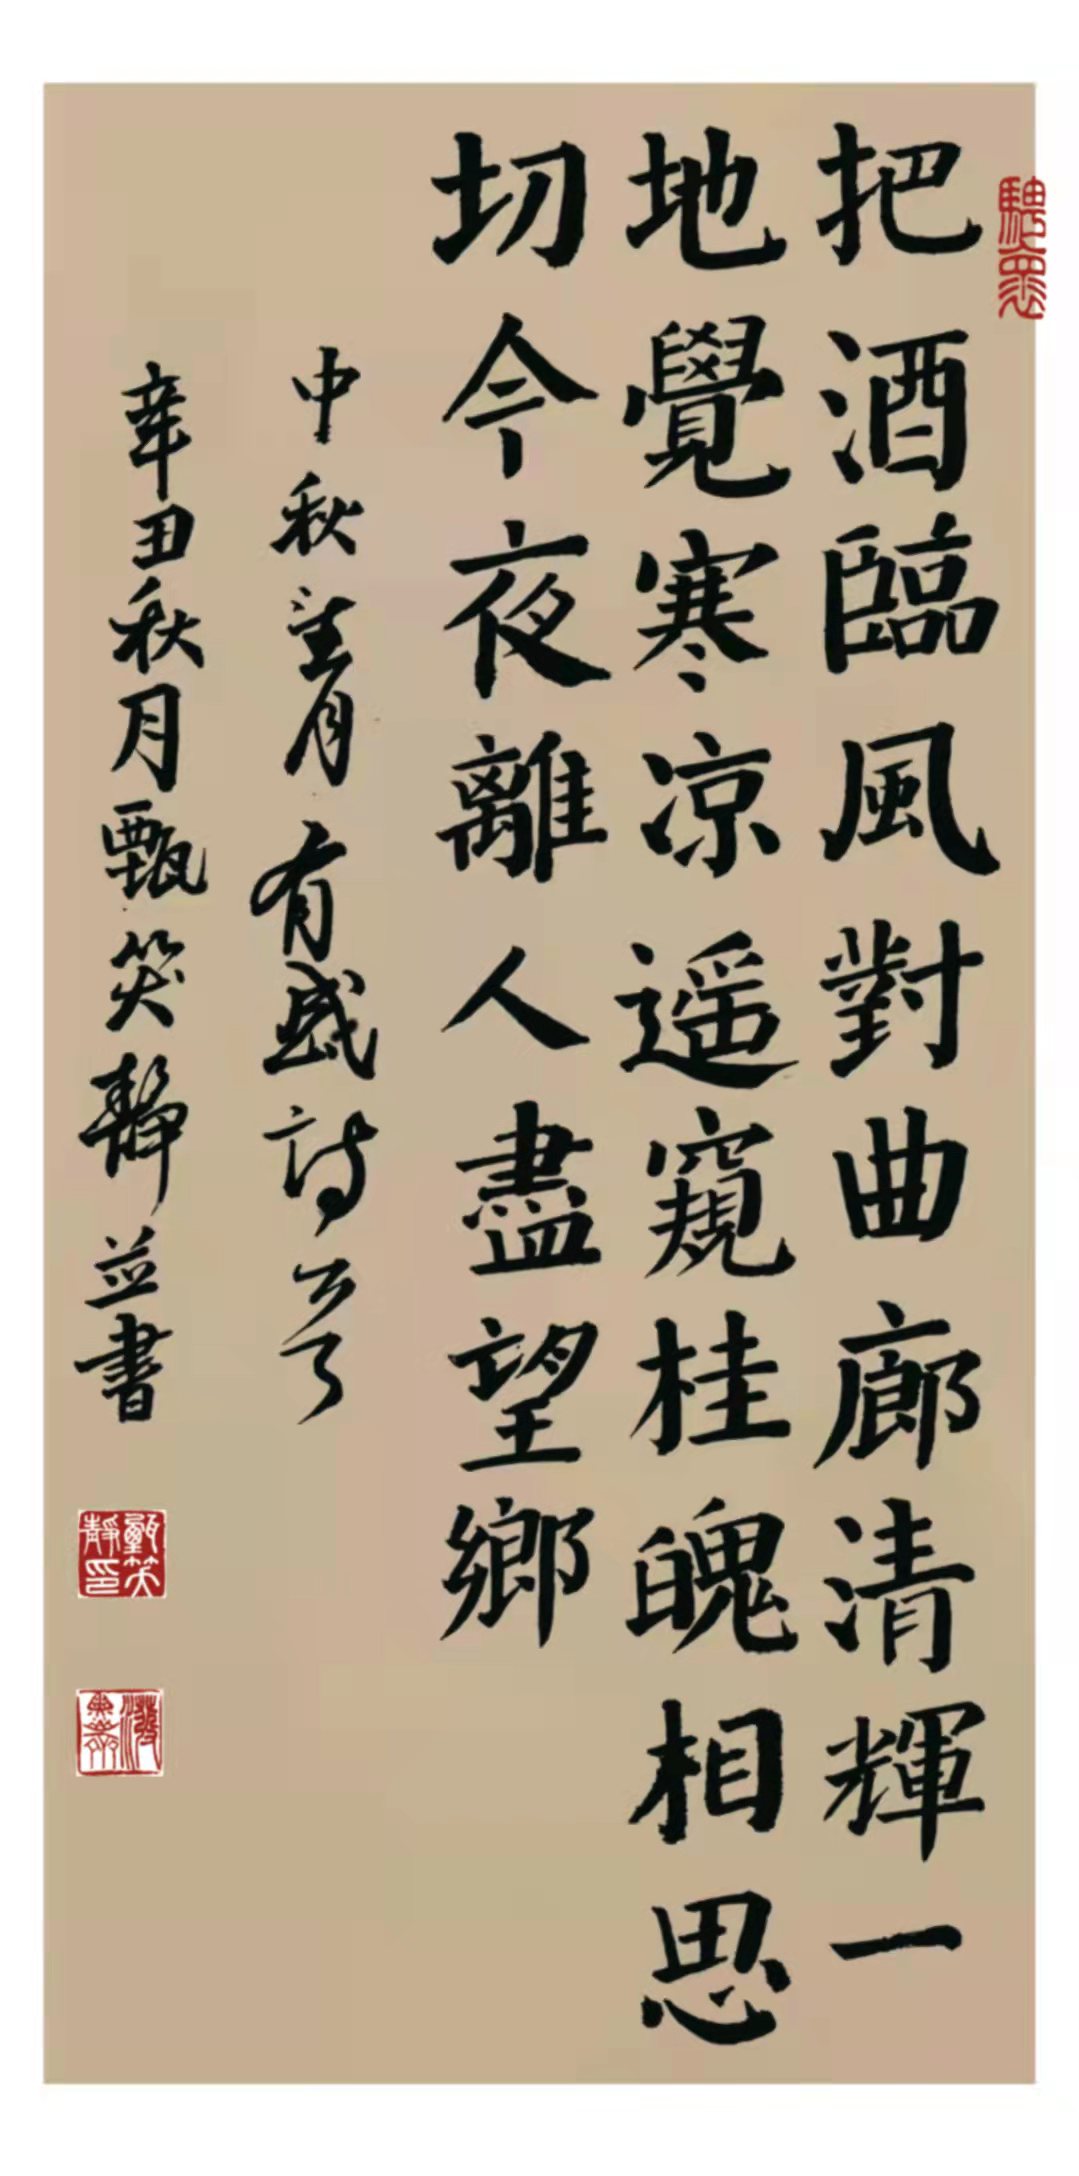 把酒臨風對曲廊清輝一
地覺寒凉遥窺桂魄相思
切今夜離人盡望鄉
中秋望月有感詩一首
辛丑秋月甄笑靜並書
甄笑靜印